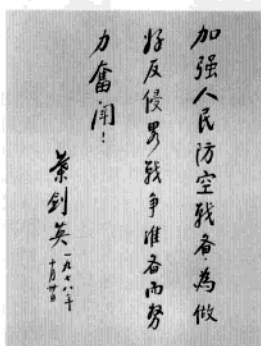 加强人民防空战备·为做
好反侵略战争准备而努
力奋闘！
葉剑英
一九七八年
十月廿日